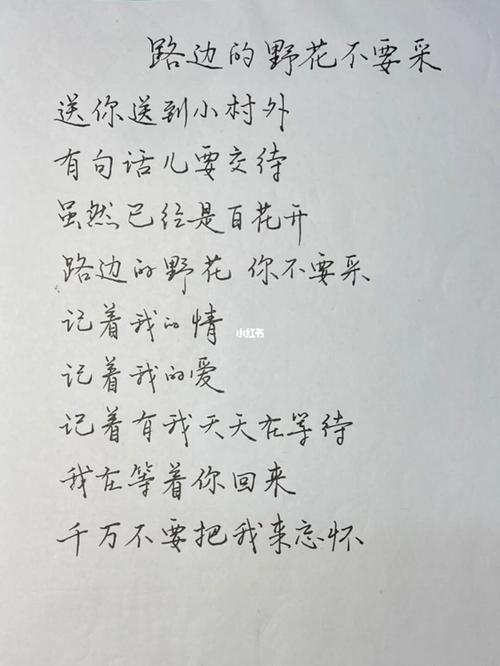 路边的野花不要采
送你送到小村外
有句话儿要交待
虽然已经是百花开
路边的野花 你不要采
记着我的情
小红书
记着我的爱
记着有我天天在等待
我在等着你回来
千万不要把我来忘怀